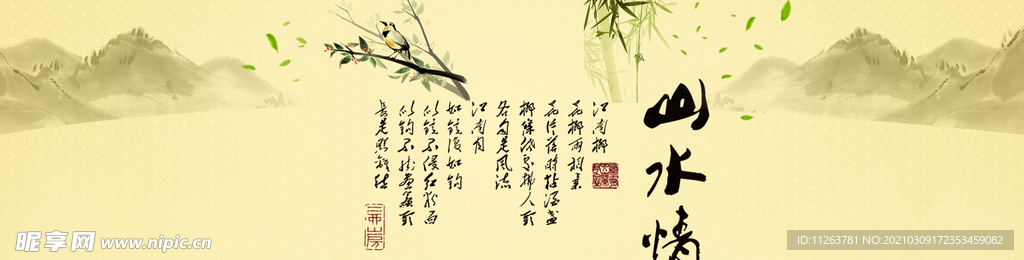 山水情
江南柳
花柳两相柔
花片落时粘酒盏
柳条低处拂人头
各自是风流
江南月
如镜复如钩
似镜不侵红粉面
似钩不挂画帘头
长是照离愁
昵享网 www.nipic.cn
ID:11263781 NO:20210309172353459082